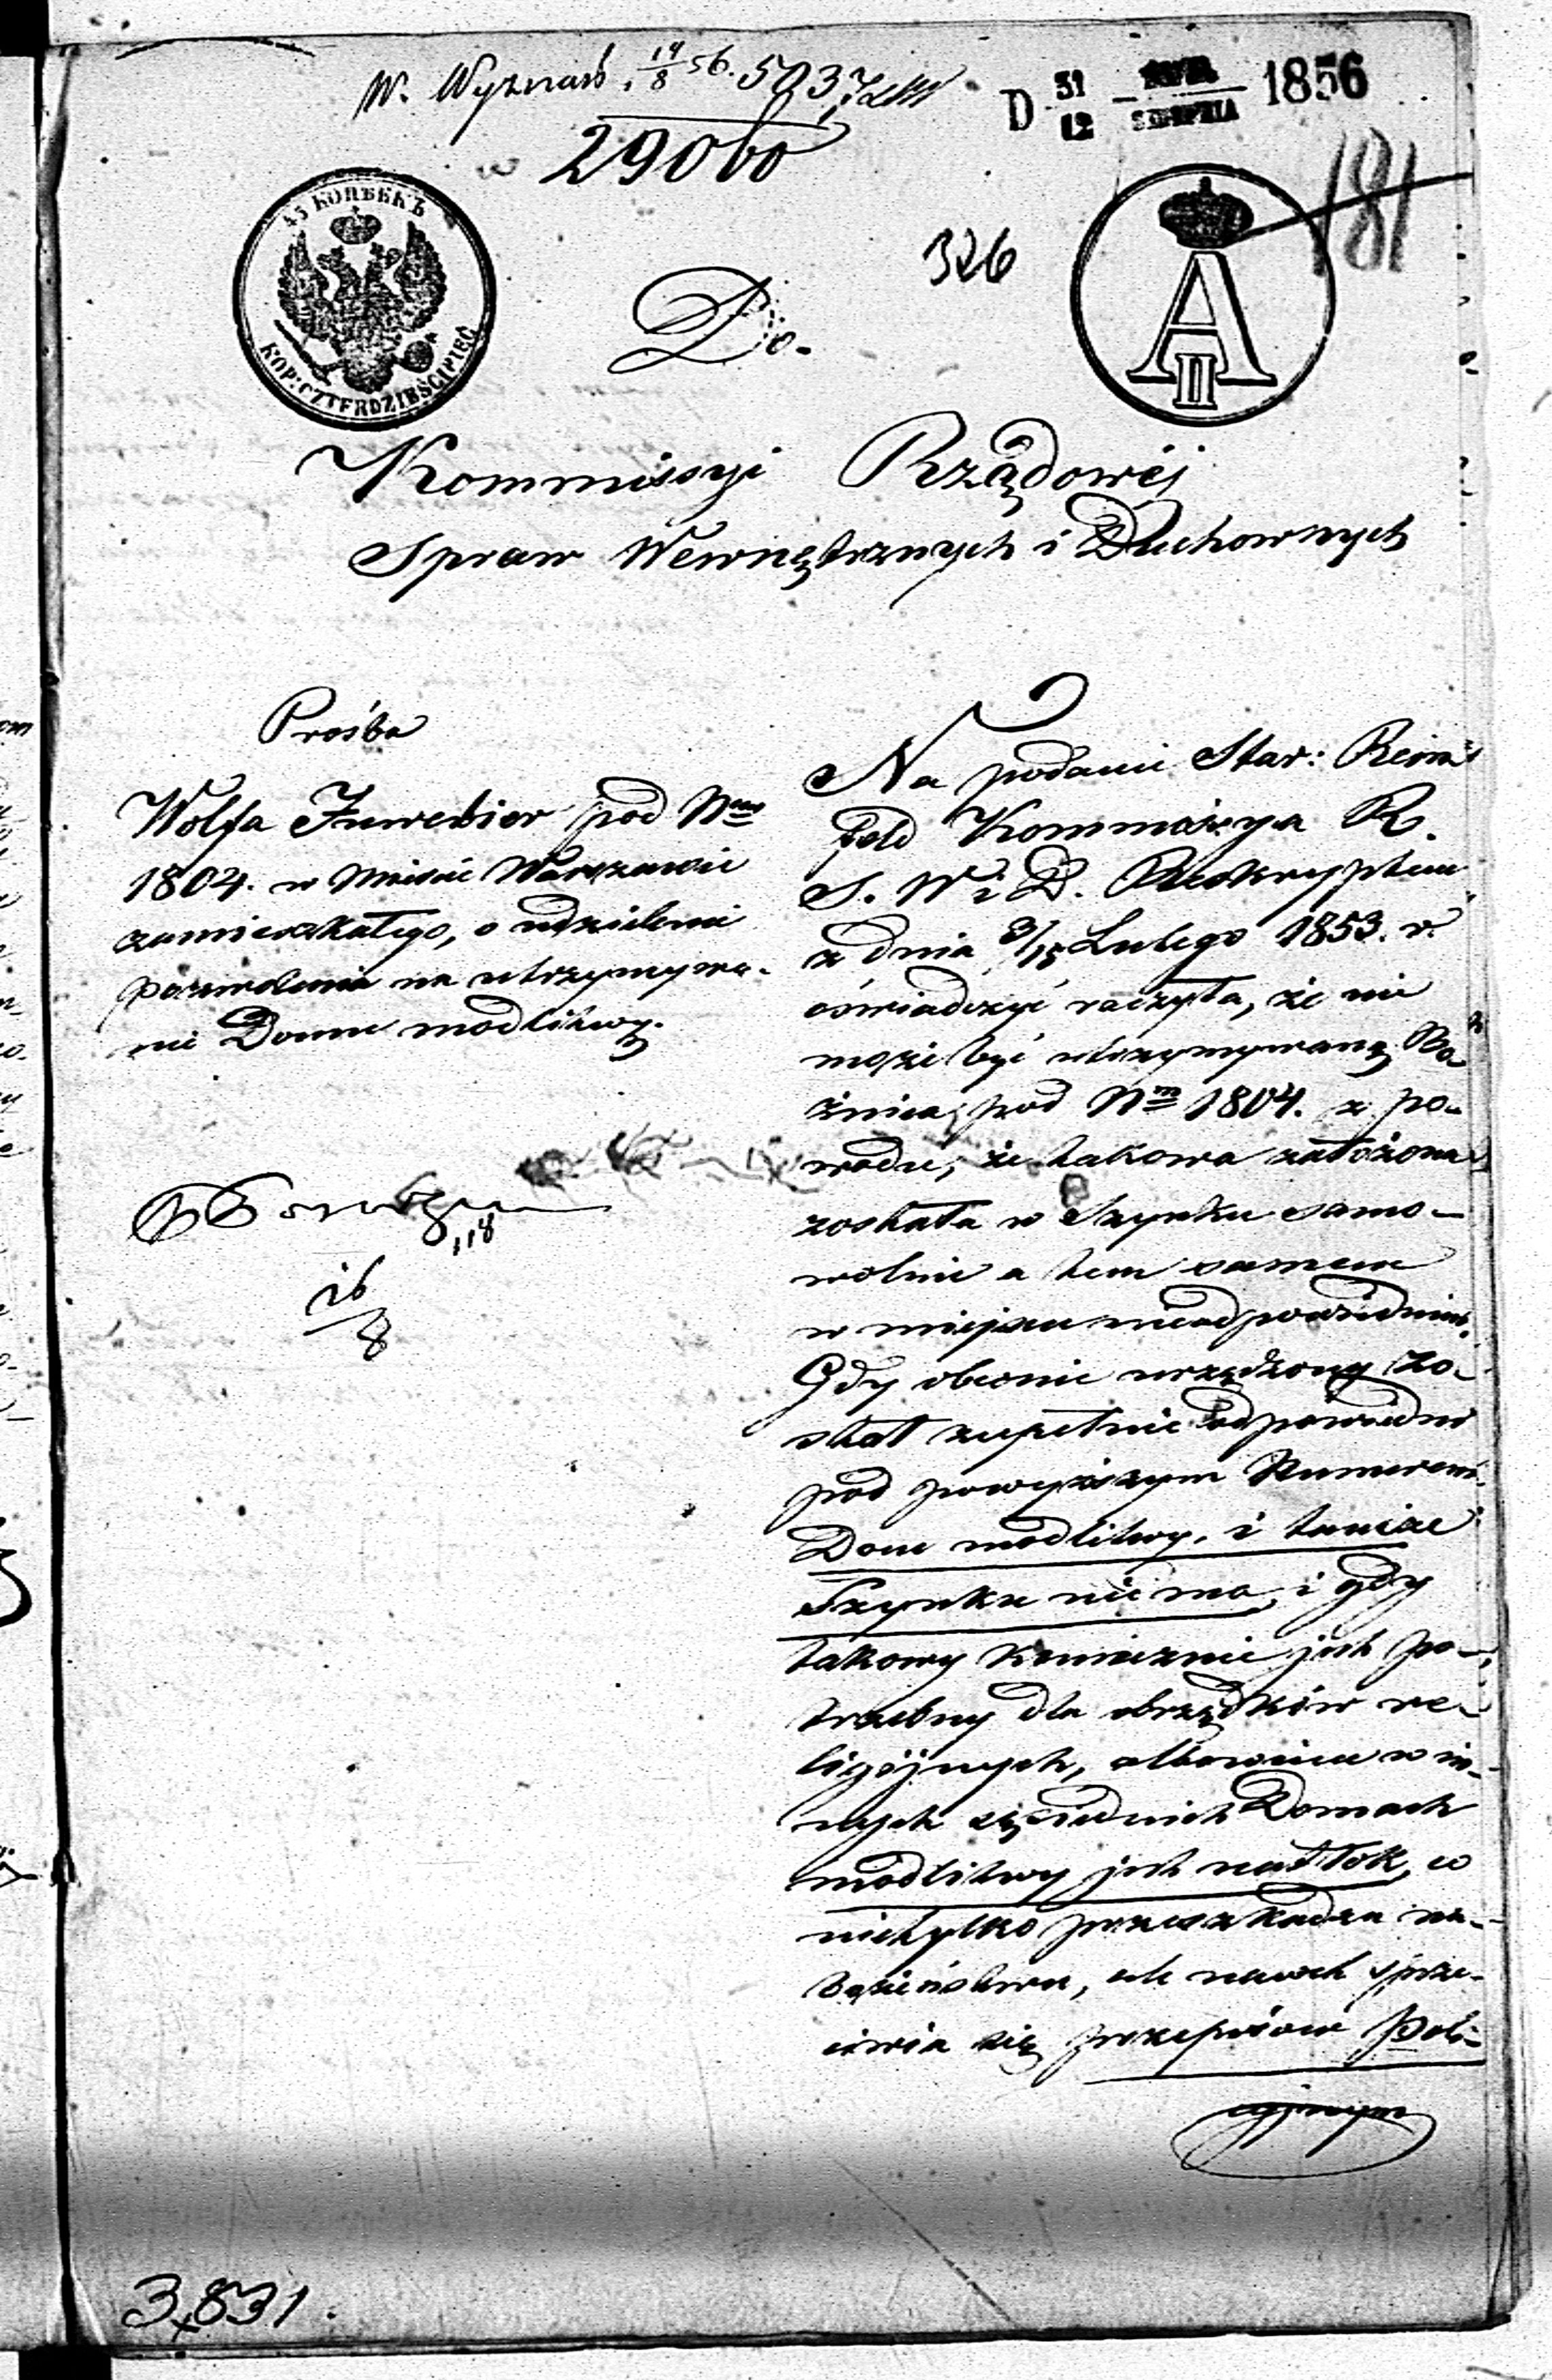 W. Wyznań. 14/8 56. 5037
29060
D 31/12 SIERPNIA 1856
181
326
45 КОПѢЕКЪ
KOP: CZTERDZIEŚCI PIĘĆ
A II
Do
Kommissyi Rządowéj
Spraw Wewnętrznych i Duchownych
Prośba
Wolfa pod Nrm
1804. w Mieście Warszawie
zamieszkałego, o udzielenie
pozwolenia na utrzymywa-
nie Domu modlitwy.
16/8
Na podanie Star:
feld Kommissya R.
S. W i D. Reskryptem
z dnia 3/15 Lutego 1853. r.
oświadczyć raczyła, że nie
może być utrzymywaną Bo
żnica pod Nm 1804. z po-
wodu, że takowa założona
została w Szynku samo-
wolnie a tem samem
w miejscu nieodpowiednim.
Gdy obecnie urządzony zo-
stał zupełnie odpowiedni
pod powyższym Numerem
Dom modlitwy, i tamże
Szynku nie ma, i gdy
takowy koniecznie jest po-
trzebny dla obrządków re-
ligijnych, albowiem w in-
nych sąsiednich Domach
modlitwy jest natłok, co
nietylko przeszkadza na-
bożeństwu, ale nawet sprze-
ciwia się przepisom Poli-
cyjnym
3,831.